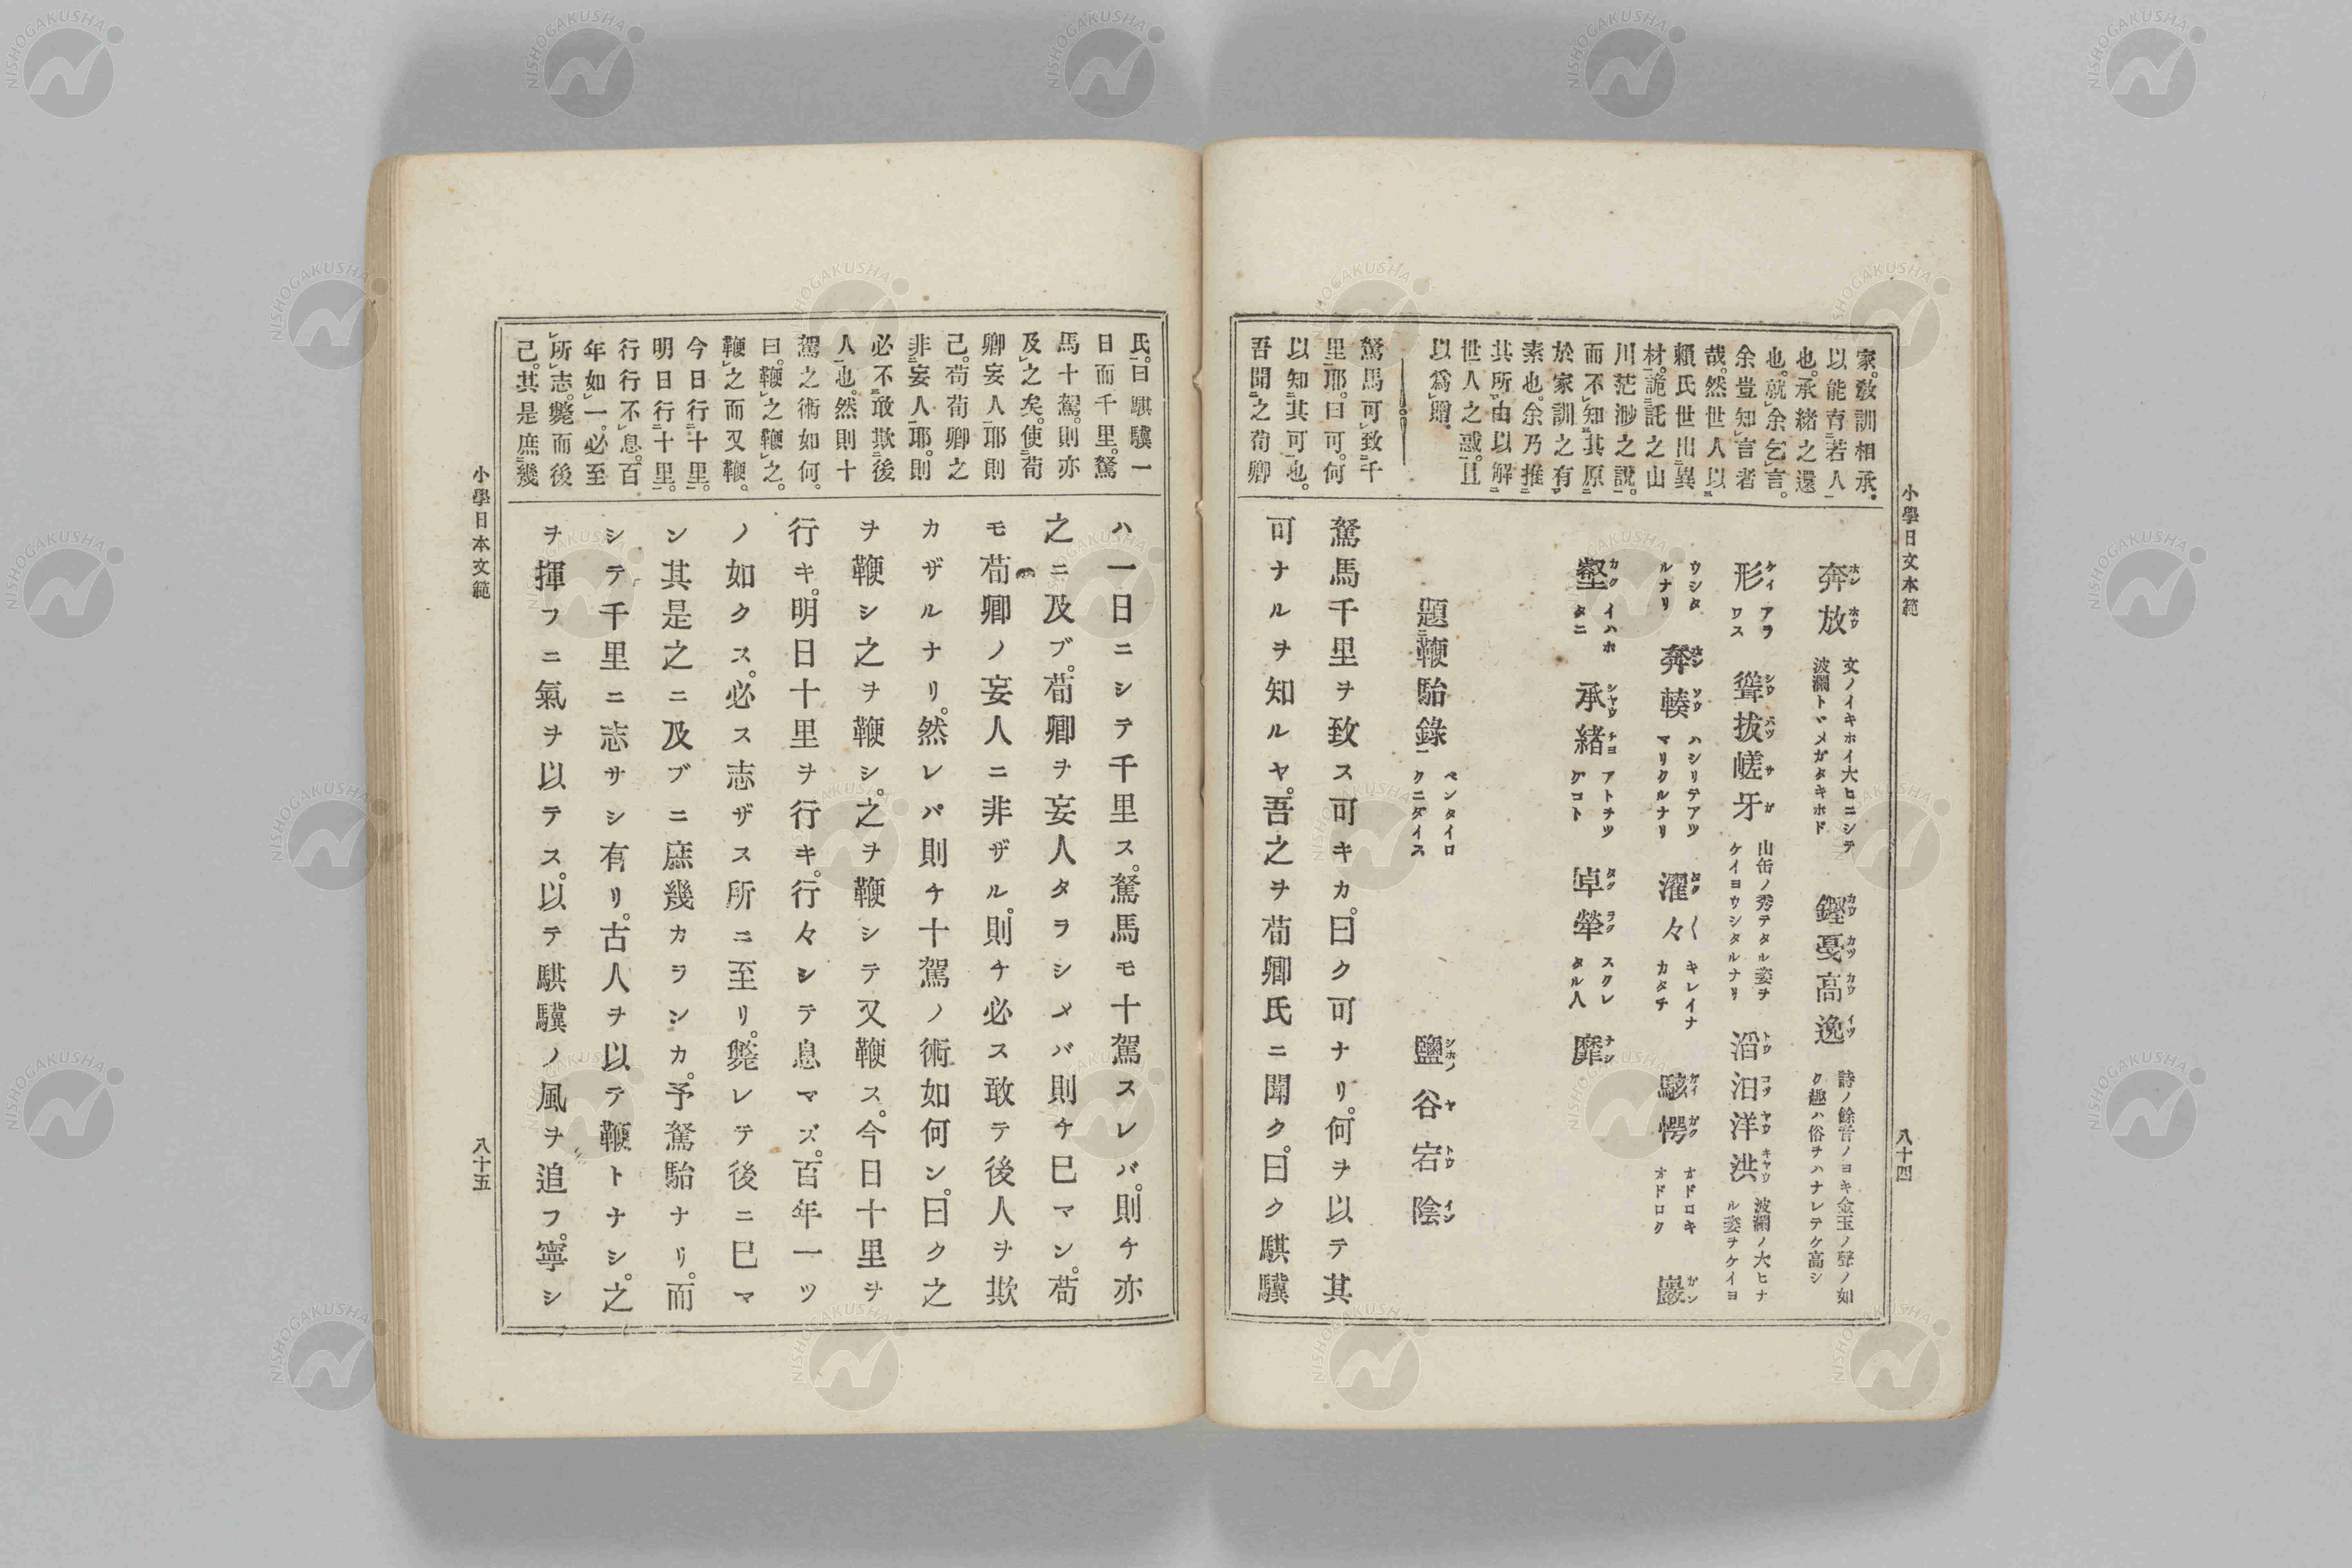 小學日文本範
八十四
家。敎訓相承。
以能育若人
也。承緒之還
也。就余乞言。
余豈知言者
哉。然世人以
賴氏世出異
材。詭託之山
川茫渺之說。
而不知其原
於家訓之有
素也。余乃推
其所由以解
世人之惑。且
以爲贈。
駑馬可致千
里耶。曰可。何
以知其可也。
吾聞之荀卿
奔放 ホンホウ 文ノイキホイ大ヒニシテ波瀾トヾメガタキホド
鏗戞高逸 カウカツカウイツ 詩ノ餘音ノヨキ金玉ノ聲ノ如ク趣ハ俗ヲハナレテケ高シ
形 ケイ アラワス
聳抜嵯牙 山缶ノ秀テタル姿ヲケイヨウシタルナリ
滔汨洋洪 波瀾ノ大ヒナル姿ヲケイヨ
ウシタルナリ
奔輳 ハシリテアツマリクルナリ
濯々 キレイナカタチ
駭愕 ガイガク オドロキオドロク
巖 ガン
壑 カク イハホタニ
承緒 アトヲツグコト
卓犖 タクラク スクレタル人
靡 ナシ
題鞭駘錄 ベンタイロクニダイス
鹽谷宕陰 シホノヤトウイン
駑馬千里ヲ致ス可キカ。曰ク可ナリ。何ヲ以テ其
可ナルヲ知ルヤ。吾之ヲ荀卿氏ニ聞ク。曰ク騏驥
氏。曰騏驥一
日而千里。駑
馬十駕。則亦
及之矣。使荀
卿妄人耶則
已。荀荀卿之
非妄人耶。則
必不敢欺後
人也。然則十
駕之術如何。
曰。鞭之鞭之。
鞭之而又鞭。
今日行十里。
明日行十里。
行行不息。百
年如一。必至
所志。斃而後
已。其是庶幾
ハ一日ニシテ千里ス。駑馬モ十駕スレバ。則チ亦
之ニ及ブ。荀卿ヲ妄人タラシメバ則チ已マン。荀
モ荀卿ノ妄人ニ非ザル。則チ必ス敢テ後人ヲ欺
カザルナリ。然レバ則チ十駕ノ術如何ン。曰ク之
ヲ鞭シ之ヲ鞭シ。之ヲ鞭シテ又鞭ス。今日十里ヲ
行キ。明日十里ヲ行キ。行々シテ息マズ。百年一ツ
ノ如クス。必ス志ザス所ニ至リ。斃レテ後ニ已マ
ン其是之ニ及ブニ庶幾カヲシカ。予駑駘ナリ。而
シテ千里ニ志サシ有リ。古人ヲ以テ鞭トナシ。之
ヲ揮フニ氣ヲ以テス。以テ騏驥ノ風ヲ追フ。寧シ
小學日本文範
八十五
NISHOGAKUSHA